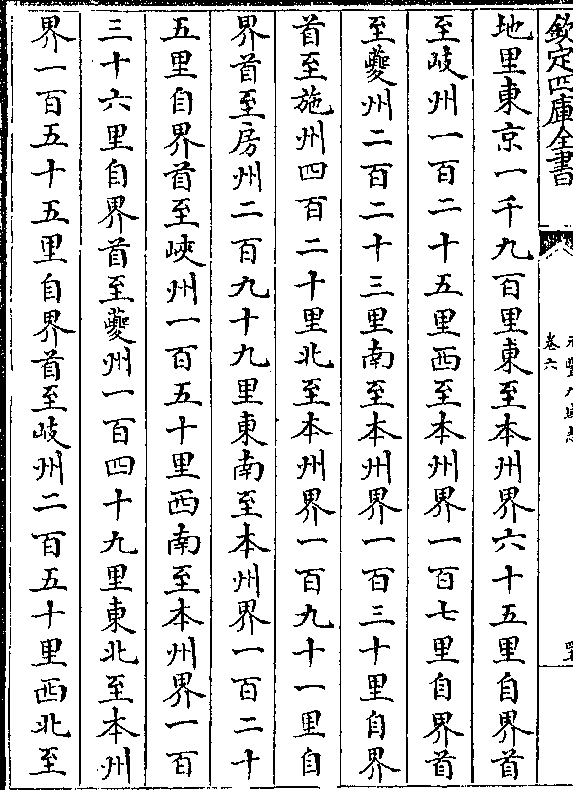 欽定四庫全書
元豐九域志
卷六
地里東京一千九百里東至本州界六十五里自界首
至峽州一百二十五里西至本州界一百七里自界首
至夔州二百二十三里南至本州界一百三十里自界
首至施州四百二十里北至本州界一百九十一里自
界首至房州二百九十九里東南至本州界一百二十
五里自界首至峽州一百五十里西南至本州界一百
三十六里自界首至夔州一百四十九里東北至本州
界一百五十五里自界首至峽州二百五十里西北至